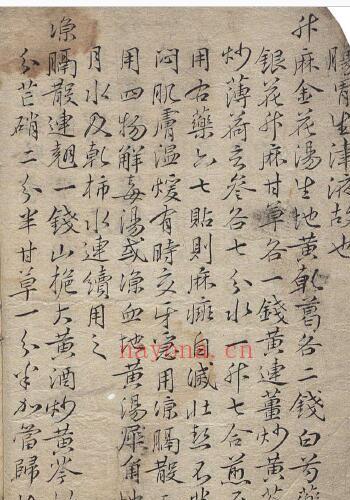 腸胃生津液故也
升麻金花湯生地黃乾葛各二錢白芍藥
銀花升麻甘草各一錢黃連薑炒黃
炒薄荷玄參各七分水一升七合煎
用右藥六七貼則麻癍自減壯熱不
悶肌膚溫煖有時交牙交用涼膈散
用四物解毒湯或涼血地黃湯犀角地
月水及乾柿水連續用之
涼膈散連翹一錢山梔大黃酒炒黃芩
分芒硝二分半甘草一分半加當歸
nayona.cn